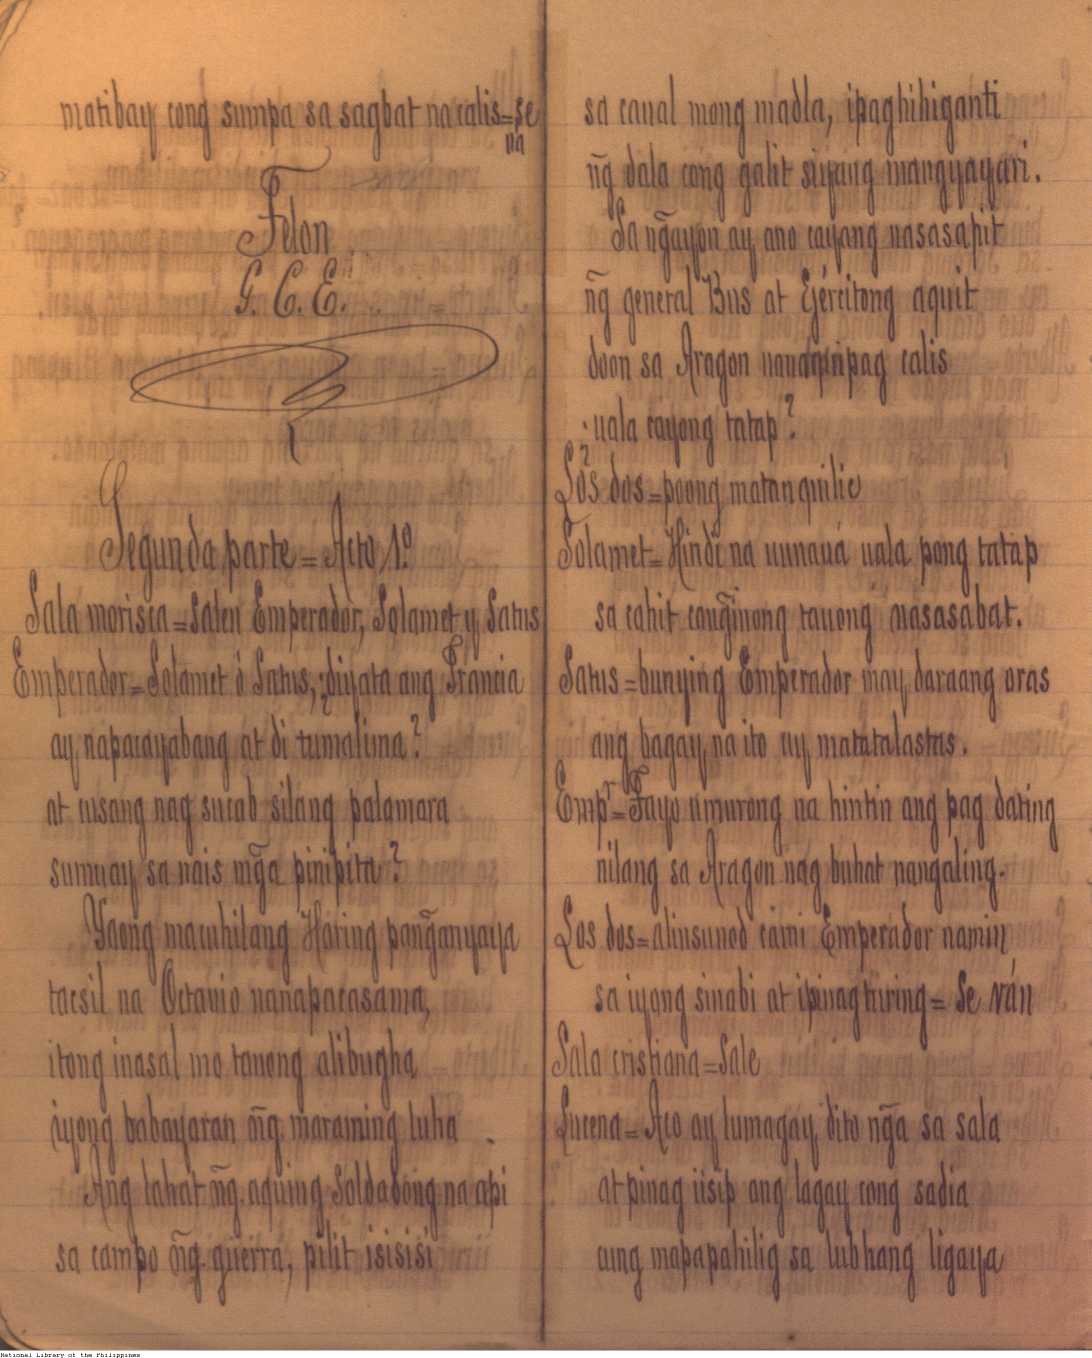 matibay cong sumpa sa sagbat na calis=se
va
Felon
G. C. E.
Segunda parte = Acto 1º
Sala morisca=Salen Emperador, Solamet y Satus
Emperador=Solamet ó Satus, ¿diyata ang Francia
ay napacayabang at di tumalima?
at cusang nag sucab silang palamara
sumuay sa nais mg̃a pinipita?
Yaong macuhilang Haring pang̃anyaya
tacsil na Octavio nanapacasama,
itong inasal mo tauong alibugha
iyong babayaran n͠g maraming luha.
Ang lahat n͠g aquing Soldadong na api
sa campo n͠g guerra, pilit isisisi
sa canal mong madla, ipaghihiganti
n͠g dala cong galit siyang mangyayari.
Sa ng̃ayon ay ano cayang nasasapit
n͠g general Bus at Ejércitong aquit
doon sa Aragon nanag pag calis
¿uala cayong tatap?
Los dos=poong matanquilic
Solamet=Hindi na uunauá uala pong tatap
sa cahit cang̃inong tauong nasasabat.
Satus=bunying Emperador may daraang oras
ang bagay na ito ay matatalastas.
Empr=Tayo umurong na hintin ang pag dating
nilang sa Aragon nag buhat nangaling.
Los dos=alinsunod cami Emperador namin,
sa iyong sinabi at ipinagtiring= Se ván
Sala cristiana=Sale
Lucena=Aco ay lumagay dito ng̃a sa sala
at pinag iisip ang lagay cong sadia
aung mapapahilig sa lubhang ligaya